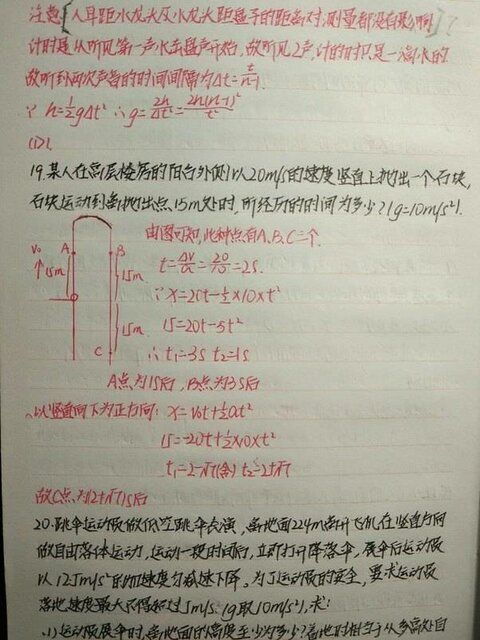 注意[人耳距水龙头及水龙头距盘子的距离对测量都没有影响]?
计时是从听见第一声水击盘声开始,故听见2声,计的时只是一滴水的
故听到两次声音的时间间隔为Δt=t/n-1.
∵ h=½gΔt² ∴g=2h/Δt²=2h(n-1)²/t²
(1)、
19.某人在高层楼房的阳台外侧以20m/s的速度竖直上抛出一个石块,
石块运动到离抛出点15m处时,所经历的时间为多少?(g=10m/s²).
由图可知,此种点有A、B、C三个.
V₀ A B
t=ΔV/a=20/10=2s.
↑15m 15m
∵x=20t-½×10×t²
15=20t-5t²
15m
∴t₁=3s t₂=1s
C
A点为1S后,B点为3S后
以竖直向下为正方向: x=V₀t+½at²
15=-20t+½×10×t²
t₁=2-√7(舍) t₂=2+√7
故C点为(2+√7)S后
20.跳伞运动员做低空跳伞表演,离地面224m离开飞机在竖直方向
做自由落体运动,运动一段时间后,立即打开降落伞,展伞后运动员
以12.5m/s²的加速度匀减速下降。为了运动员的安全,要求运动员
落地速度最大不得超过5m/s.(g取10m/s²),求:
(1)运动员展伞时,离地面的高度至少为多少?着地时相当于从多高处自